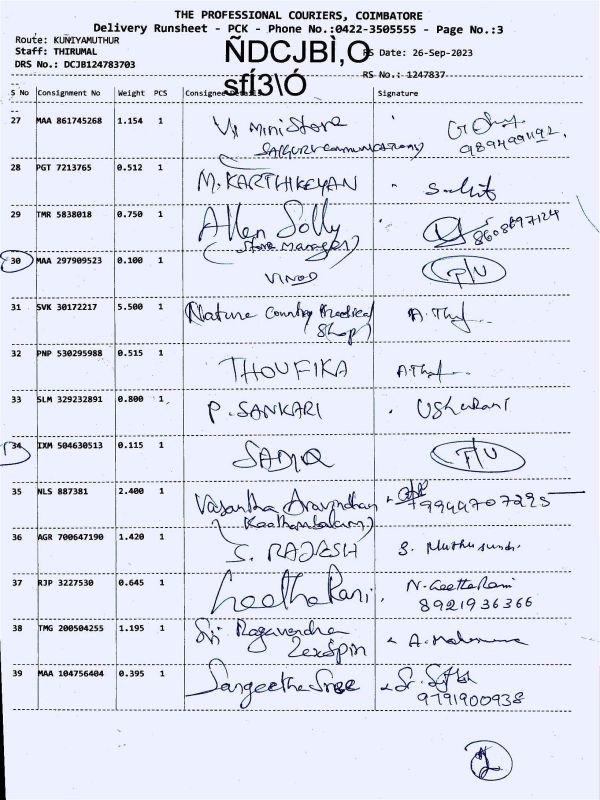 THE PROFESSIONAL COURIERS, COIMBATORE
Delivery Runsheet - PCK - Phone No.:0422-3505555 - Page No.:3
Route: KUNIYAMUTHUR
Staff: THIRUMAL ÑDCJBÌ,O RS Date: 26-Sep-2023
DRS No.: DCJB124783703 sfÍ3\Ó RS No.: 1247837
S No Consignment No Weight PCS Consignee Details Signature
27 MAA 861745268 1.154 1 Vi Mini Store
28 PGT 7213765 0.512 1 M. KARTHIKEYAN
29 TMR 5838018 0.750 1 Allen Solly 8608697124
(Store Manager)
30 MAA 297909523 0.100 1 VINOD
31 SVK 30172217 5.500 1 Nature Country Medical
Shop)
32 PNP 530295988 0.515 1 THOUFIKA
33 SLM 329232891 0.800 1 P. SANKARI Usharani
34 IXM 504630513 0.115 1 SADIQ
35 NLS 887381 2.400 1 Vasantha Aravindhan
36 AGR 700647190 1.420 1 S. RAJESH
37 RJP 3227530 0.645 1 Geetha Rani N. Geetha Rani
8921936366
38 TMG 200504255 1.195 1 Sri Ragavendra
39 MAA 104756404 0.395 1 Sangeetha Sree
9791900938